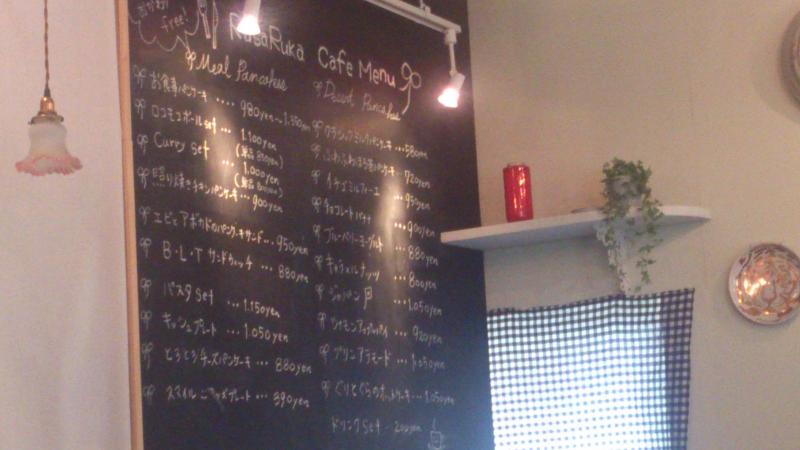 おかわり
free!
RusaRuka Cafe Menu
Meal Pancakes
お食事パンケーキ .... 980yen~1.350yen
ロコモコボールset ... 1.100yen
(単品 850yen)
Curry set ... 1.000yen
(単品 800yen)
照り焼きチキンパンケーキ... 900yen
エビとアボカドのパンケーキサンド... 950yen
B・L・T サンドウィッチ ... 880yen
パスタ set ... 1.150yen
キッシュプレート ... 1.050yen
とろとろチーズパンケーキ ... 880yen
スマイル プレート ... 390yen
Dessert Pancakes
クラシックミルクパンケーキ... 580yen
ふわふわ パンケーキ... 720yen
イチゴミルフィーユ ... 950yen
チョコレートバナナ ... 900yen
ブルーベリーヨーグルト ... 880yen
キャラメルナッツ ... 800yen
ジャパン ... 1.050yen
シナモンアップルパイ ... 920yen
プリンアラモード ... 1.050yen
ぐりとぐらのホットケーキ... 1.050yen
ドリンク set ... 200yen